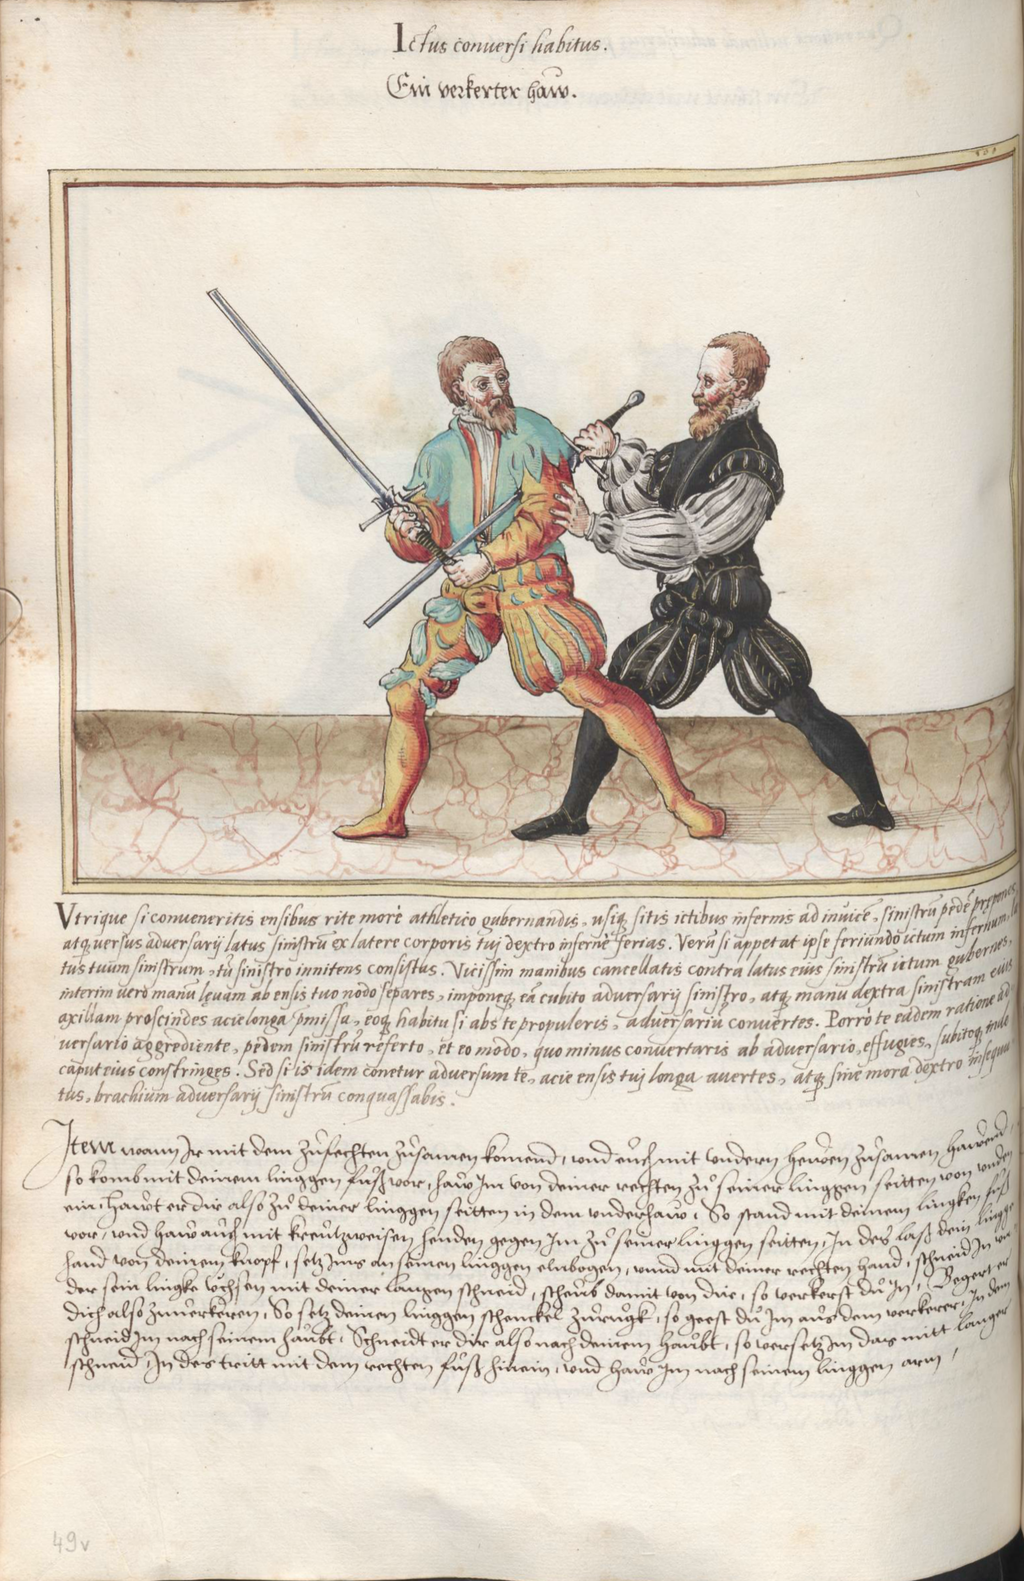 Ictus conuersi habitus.
Ein verkerter haw.
Vtrique si conueneritis ensibus rite more athletico gubernandis, usq; sitis ictibus infernis ad inuicē, sinistrū pedē prepones,
atq; versus aduersarij latus sinistrū ex latere corporis tuj dextro infernè ferias. Verū si appetat ipse feriundo ictum infernum, la
tus tuum sinistrum, tū sinistro innitens consistas. Vicissim manibus cancellatis contra latus eius sinistrū ictum gubernes,
interim uerò manū leuam ab ensis tuo nodo separes, imponeq; eā cubito aduersarij sinistro, atq; manu dextra sinistram eius
axillam proscindes acie longa p̄missa, eoq; habitu si abs te propuleris, aduersariū conuertes. Porrò te eadem ratione ad
uersario aggrediente, pedem sinistrū referto, et eo modo, quo minus conuertaris ab aduersario, effugies, subitoq; tuo
caput eius constringes. Sed si is idem conetur aduersum te, acie ensis tuj longa auertes, atq; sine mora dextro insequu
tus, brachium aduersarij sinistrū conquassabis.
Item wann Ir mit dem zůfechten zůsamen komend, vnd euch mit vndern hewen zůsamen hawend,
so komb mit deinem linggen fůß vor, haw Im von deiner rechten zů seiner linggen seitten von vnden
ein, hawt er dir also zů deiner linggen seitten in dem vnderhaw, So stand mit deinem lingken fůß
vor, vnd haw auch mit kreutzweisen henden gegen Im zů seiner linggen seitten, In des laß dein lingge
hand von deinem knopf, setz Ims an seinen linggen elnbogen, vnnd mit deiner rechten hand, schneid In vn
der sein lingke vchsen mit deiner langen schneid, scheub damit von dir, so verkerst du In, Begert er
dich also zuuerkeren, So setz deinen linggen schenckel zůrugk, so geest du Im aus dem verkerer, In dem
schneid Im nach seinem haubt, Schneidt er dir also nach deinem haubt, so versetz Im das mitt langer
schneid, In des tritt mit dem rechten fůß hinein, vnd haw Im nach seinem linggen arm,
49v